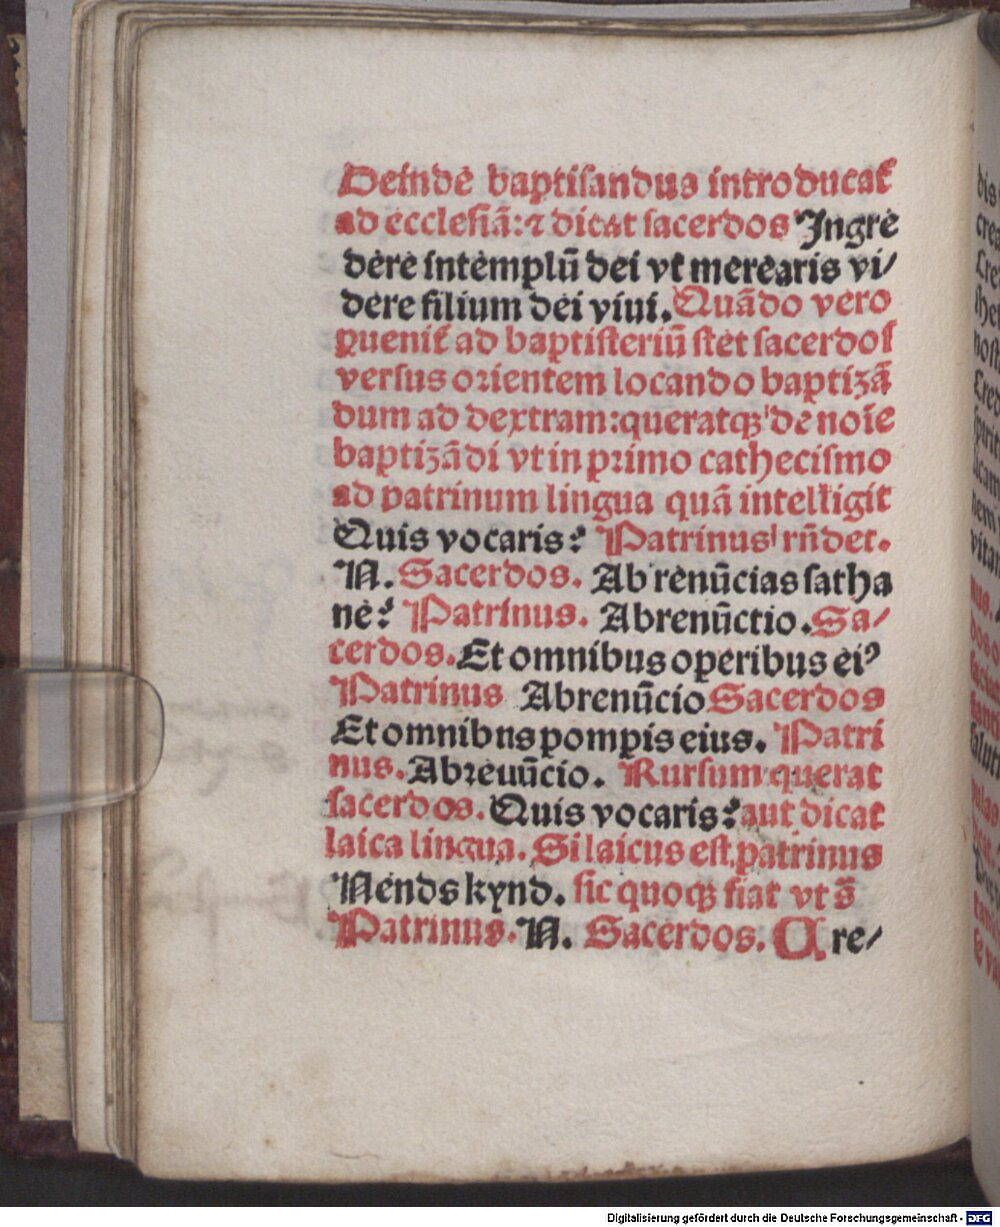 Deinde baptisandus introducat᷑
ad ecclesiā: ⁊ dicat sacerdos Ingre
dere intemplū dei vt merearis vi/
dere filium dei viui. Quādo vero
ꝑuenit᷑ ad baptisteriū stet sacerdos
versus orientem locando baptizā
dum ad dextram: queratqꝫ de noīe
baptizādi vt in primo cathecismo
ad patrinum lingua quā intelligit
Quis vocaris? Patrinus rñdet.
N. Sacerdos. Abrenūcias satha
ne? Patrinus. Abrenūctio. Sa/
cerdos. Et omnibus operibus eiꝰ
Patrinus Abrenūcio Sacerdos
Et omnibns pompis eius. Patri
nus. Abreuūcio. Rursum querat
sacerdos. Quis vocaris? aut dicat
laica lingua. Si laicus est patrinus
Nends kynd. sic quoqꝫ fiat vt s̄
Patrinus. N. Sacerdos. Cre/
Digitalisierung gefördert durch die Deutsche Forschungsgemeinschaft - DFG